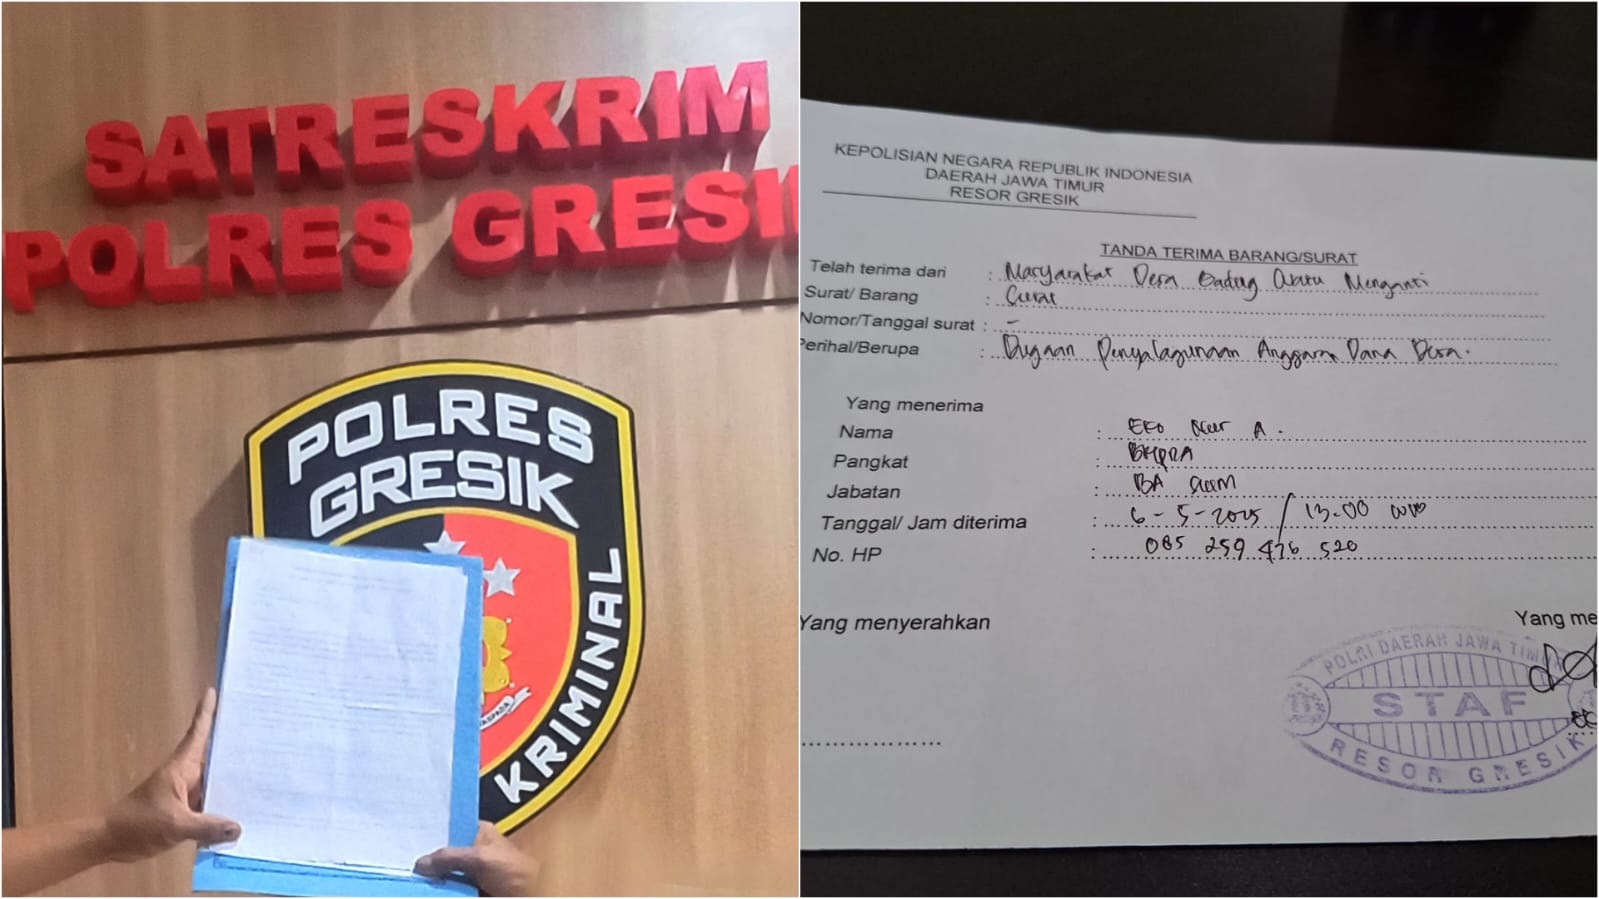 SATRESKRIM
POLRES GRESIK
POLRES
GRESIK
KRIMINAL
KEPOLISIAN NEGARA REPUBLIK INDONESIA
DAERAH JAWA TIMUR
RESOR GRESIK
TANDA TERIMA BARANG/SURAT
Telah terima dari : Masyarakat Desa Gading Watu Menganti
Surat/ Barang : Surat
Nomor/Tanggal surat : -
Perihal/Berupa : Dugaan Penyalagunaan Anggaran Dana Desa.
Yang menerima
Nama : EKO A.
Pangkat :
Jabatan : BA
Tanggal/ Jam diterima : 6-5-2025 / 13.00 WIB
No. HP : 085 259 476 520
Yang menyerahkan
Yang me
POLRI DAERAH JAWA TIMUR
STAF
RESOR GRESIK